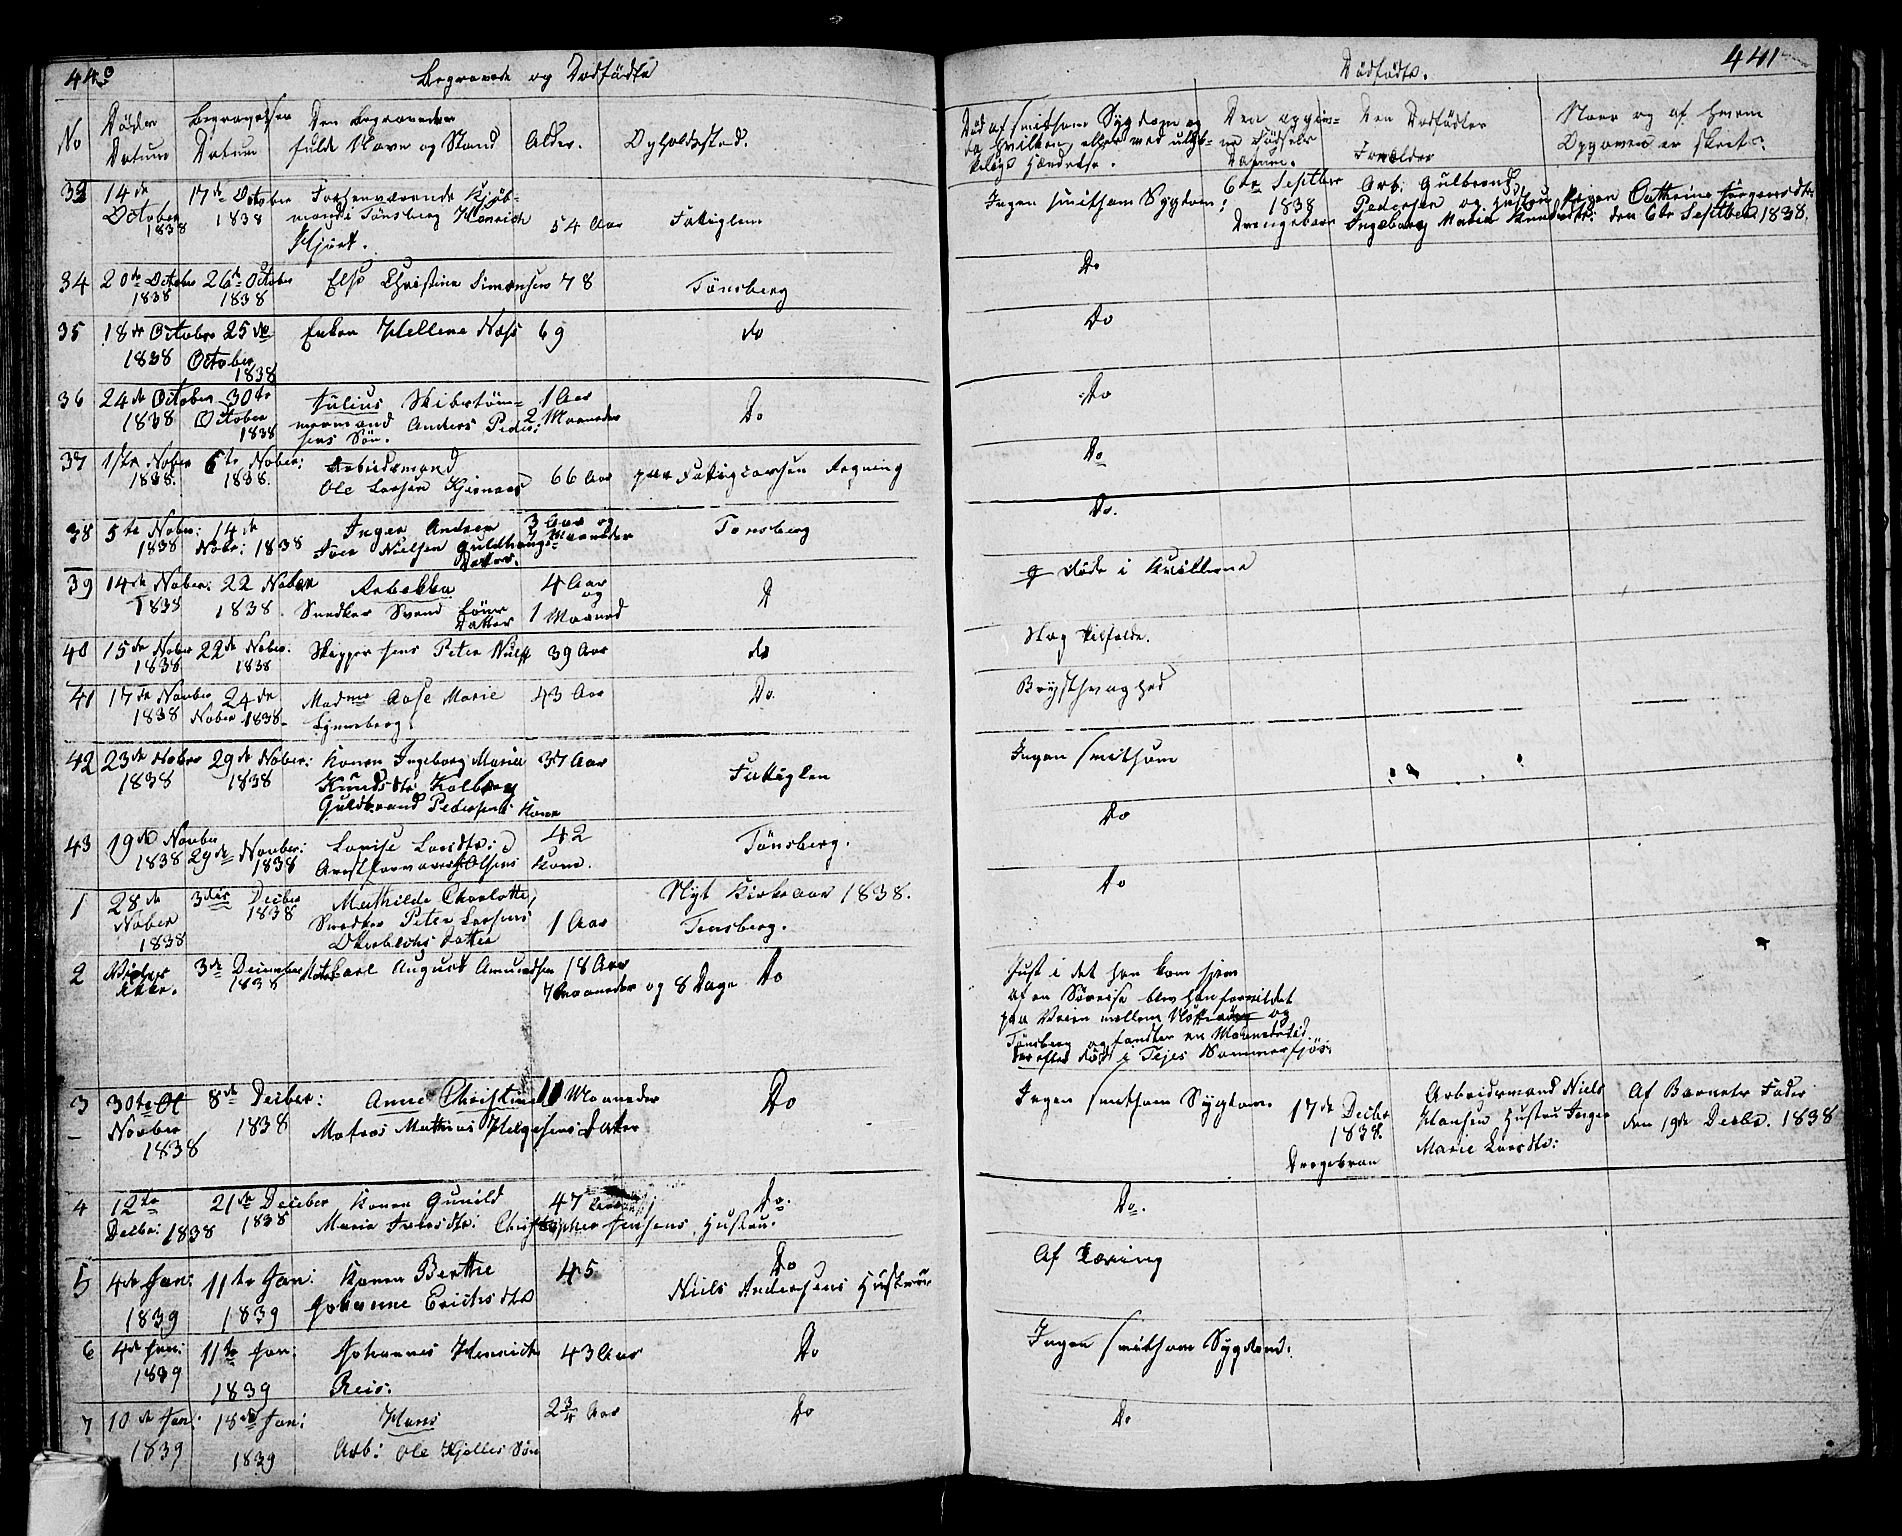 440
Begravede og Dødfødte
No
Døds Datum
Begravelses Datum
Den Begravedes fulde Navn og Stand
Alder.
Opholdssted.
33 14de October 1838 17de October 1838 Kjøbmand i Tönsberg Henrich Hjort. 54 Aar Fattiglem
34 20de October 1838 26de October 1838 Else Christine Simonsen 78 Tönsberg
35 18de October 1838 25de October 1838 Enken Hellene Næss 69 do
36 24de October 1838 30te October 1838 Julius Skibstömmermand Anders Pedersens Søn. 1 Aar 2 Maaneder Do
37 1ste Nober 1838. 6te Nober: 1838. Arbeidsmand Ole Larsen 66 Aar paa Regning
38 5te Nober: 1838 14de Nobr: 1838 Inger Andrea Iver Nielsen Datter. 3 Aar og Maaneder Tonsberg
39 14de Nober: 1838 22 Nober 1838. Rebekka Snedker Svend Datter 4 Aar og 1 Maaned D
40 15de Nober 1838 22de Nober: 1838 Skipper Jens Peter 39 Aar do
41 17de Novber 1838 24de Nober 1838. Madme Aase Marie 43 Aar Do.
42 23de Nobr 1838 29de Nober: 1838 Konen Ingeborg Maria Knudsdtr Kolberg Guldbrand Pedersens Kone 37 Aar Fattiglem
43 19de Novber 1838 29de Novber: 1838 Lovise Larsdtr: Olsens Kone. 42 Tönsberg.
Nyt Kirkeaar 1838.
1 28de Nober 1838 3die Decber 1838 Mathilde Charlotte, Snedker Peter Larsens Datter 1 Aar Tonsberg.
2 Vides ikke. 3de December 1838 Carl August Amundsen 18 Aar 7 Maaneder og 8 Dage Do
3 30te Novber 1838 8de Decber: 1838 Anne Christine Matros Mathias Helgesens Datter 11 Maaneder Do
4 12te Decbr: 1838 21de Decber 1838 Konen Gunild Maria Iversdtr: Christopher Jensens Hustru. 47 Do.
5 4de Jan: 1839 11te Jan: 1839 Konen Berthe Johanne Erichsdtr 45 Do Niels Andersens Hustru
6 4de Jan: 1839 11te Jan: 1839 Johannes Henrich Reis. 43 Aar Do
7 10de Jan: 1839 18de Jan: 1839 Hans Arb: Ole Kjelles Søn 2¾ Aar Do
441
Dødfødte.
Død af smitsom Sygdom og da hvilken, eller ved ulykkelige Hændelse.
Den opgivne Fødsels Datum.
Den Dødfødtes Forælder
Naar og af hvem Opgaven er skeet.
Ingen smitsom Sygdom; 6te Septber 1838 Drengebarn Arb: Gulbrand Pedersen og Hustru Ingeborg Maria Knudsdtr: Pigen Cathrine Jörgensdtr den 6te Septber 1838.
Do
Do
Do
Do
Do.
Døde i
Slag tilfælde.
Brystsvaghed
Ingen smitsom
Do
Do
Just i det han kom hjem
af en Söreise blev han forvildet
paa Veien mellem og
Tönsberg og fandtes en Maanedstid
derefter död i
Ingen smitsom Sygdom 17de Decbr 1838. Drengebarn Arbeidsmand Niels Hansen Hustru Inger Marie Larsdtr: Af Barnets Fader den 19de Decbr. 1838
Do.
Af Tæring
Ingen smitsom Sygdom:
Do